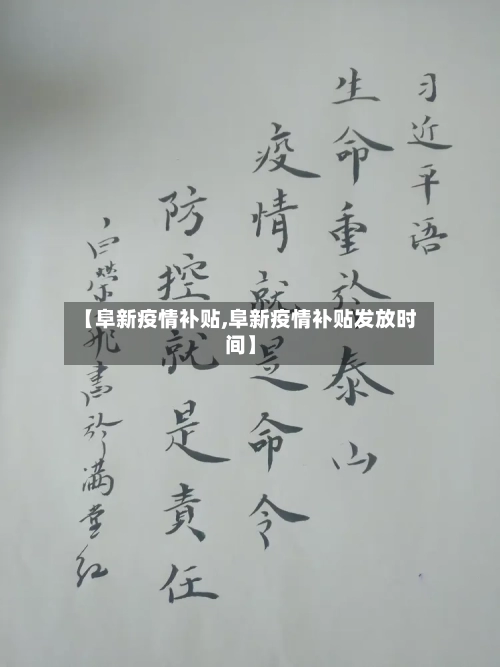 习近平语
生命重於泰山
疫情就是命令
防控就是責任
白荣飛書於满堂红
【阜新疫情补贴,阜新疫情补贴发放时
间】